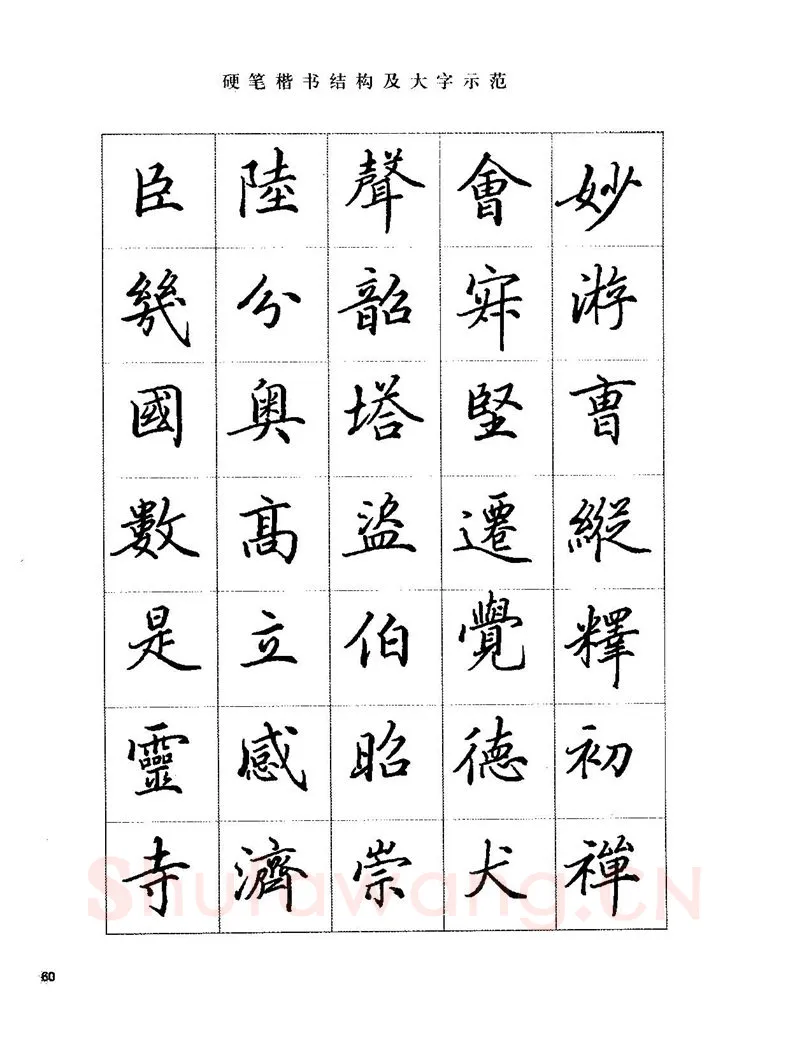 硬笔楷书结构及大字示范
妙游曺縱釋初禪
會堅遷覺德犬
聲韶塔盜伯昭崇
陸分奧髙立感濟
臣幾國數是靈寺
60
Shufawang.CN